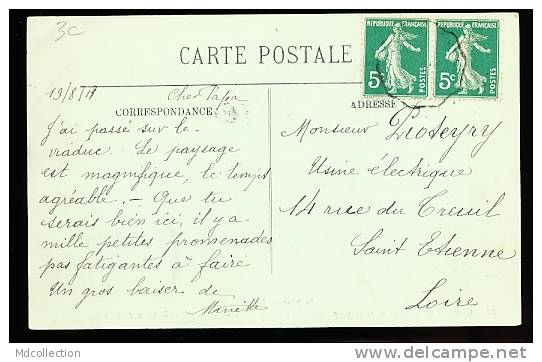 3c
CARTE POSTALE
REPUBLIQUE FRANÇAISE
5c
POSTES
REPUBLIQUE FRANÇAISE
5c
POSTES
19/8/17
Cher Papa
CORRESPONDANCE
J'ai passé sur le
viaduc. Le paysage
est magnifique, le temps
agréable. - Que tu
serais bien ici, il y a
mille petites promenades
pas fatigantes à faire
Un gros baiser de
Minette
ADRESSE
Monsieur
Usine électrique
14 rue du Treuil
Saint Etienne
Loire
Mdcollection
http://www.delcampe.net